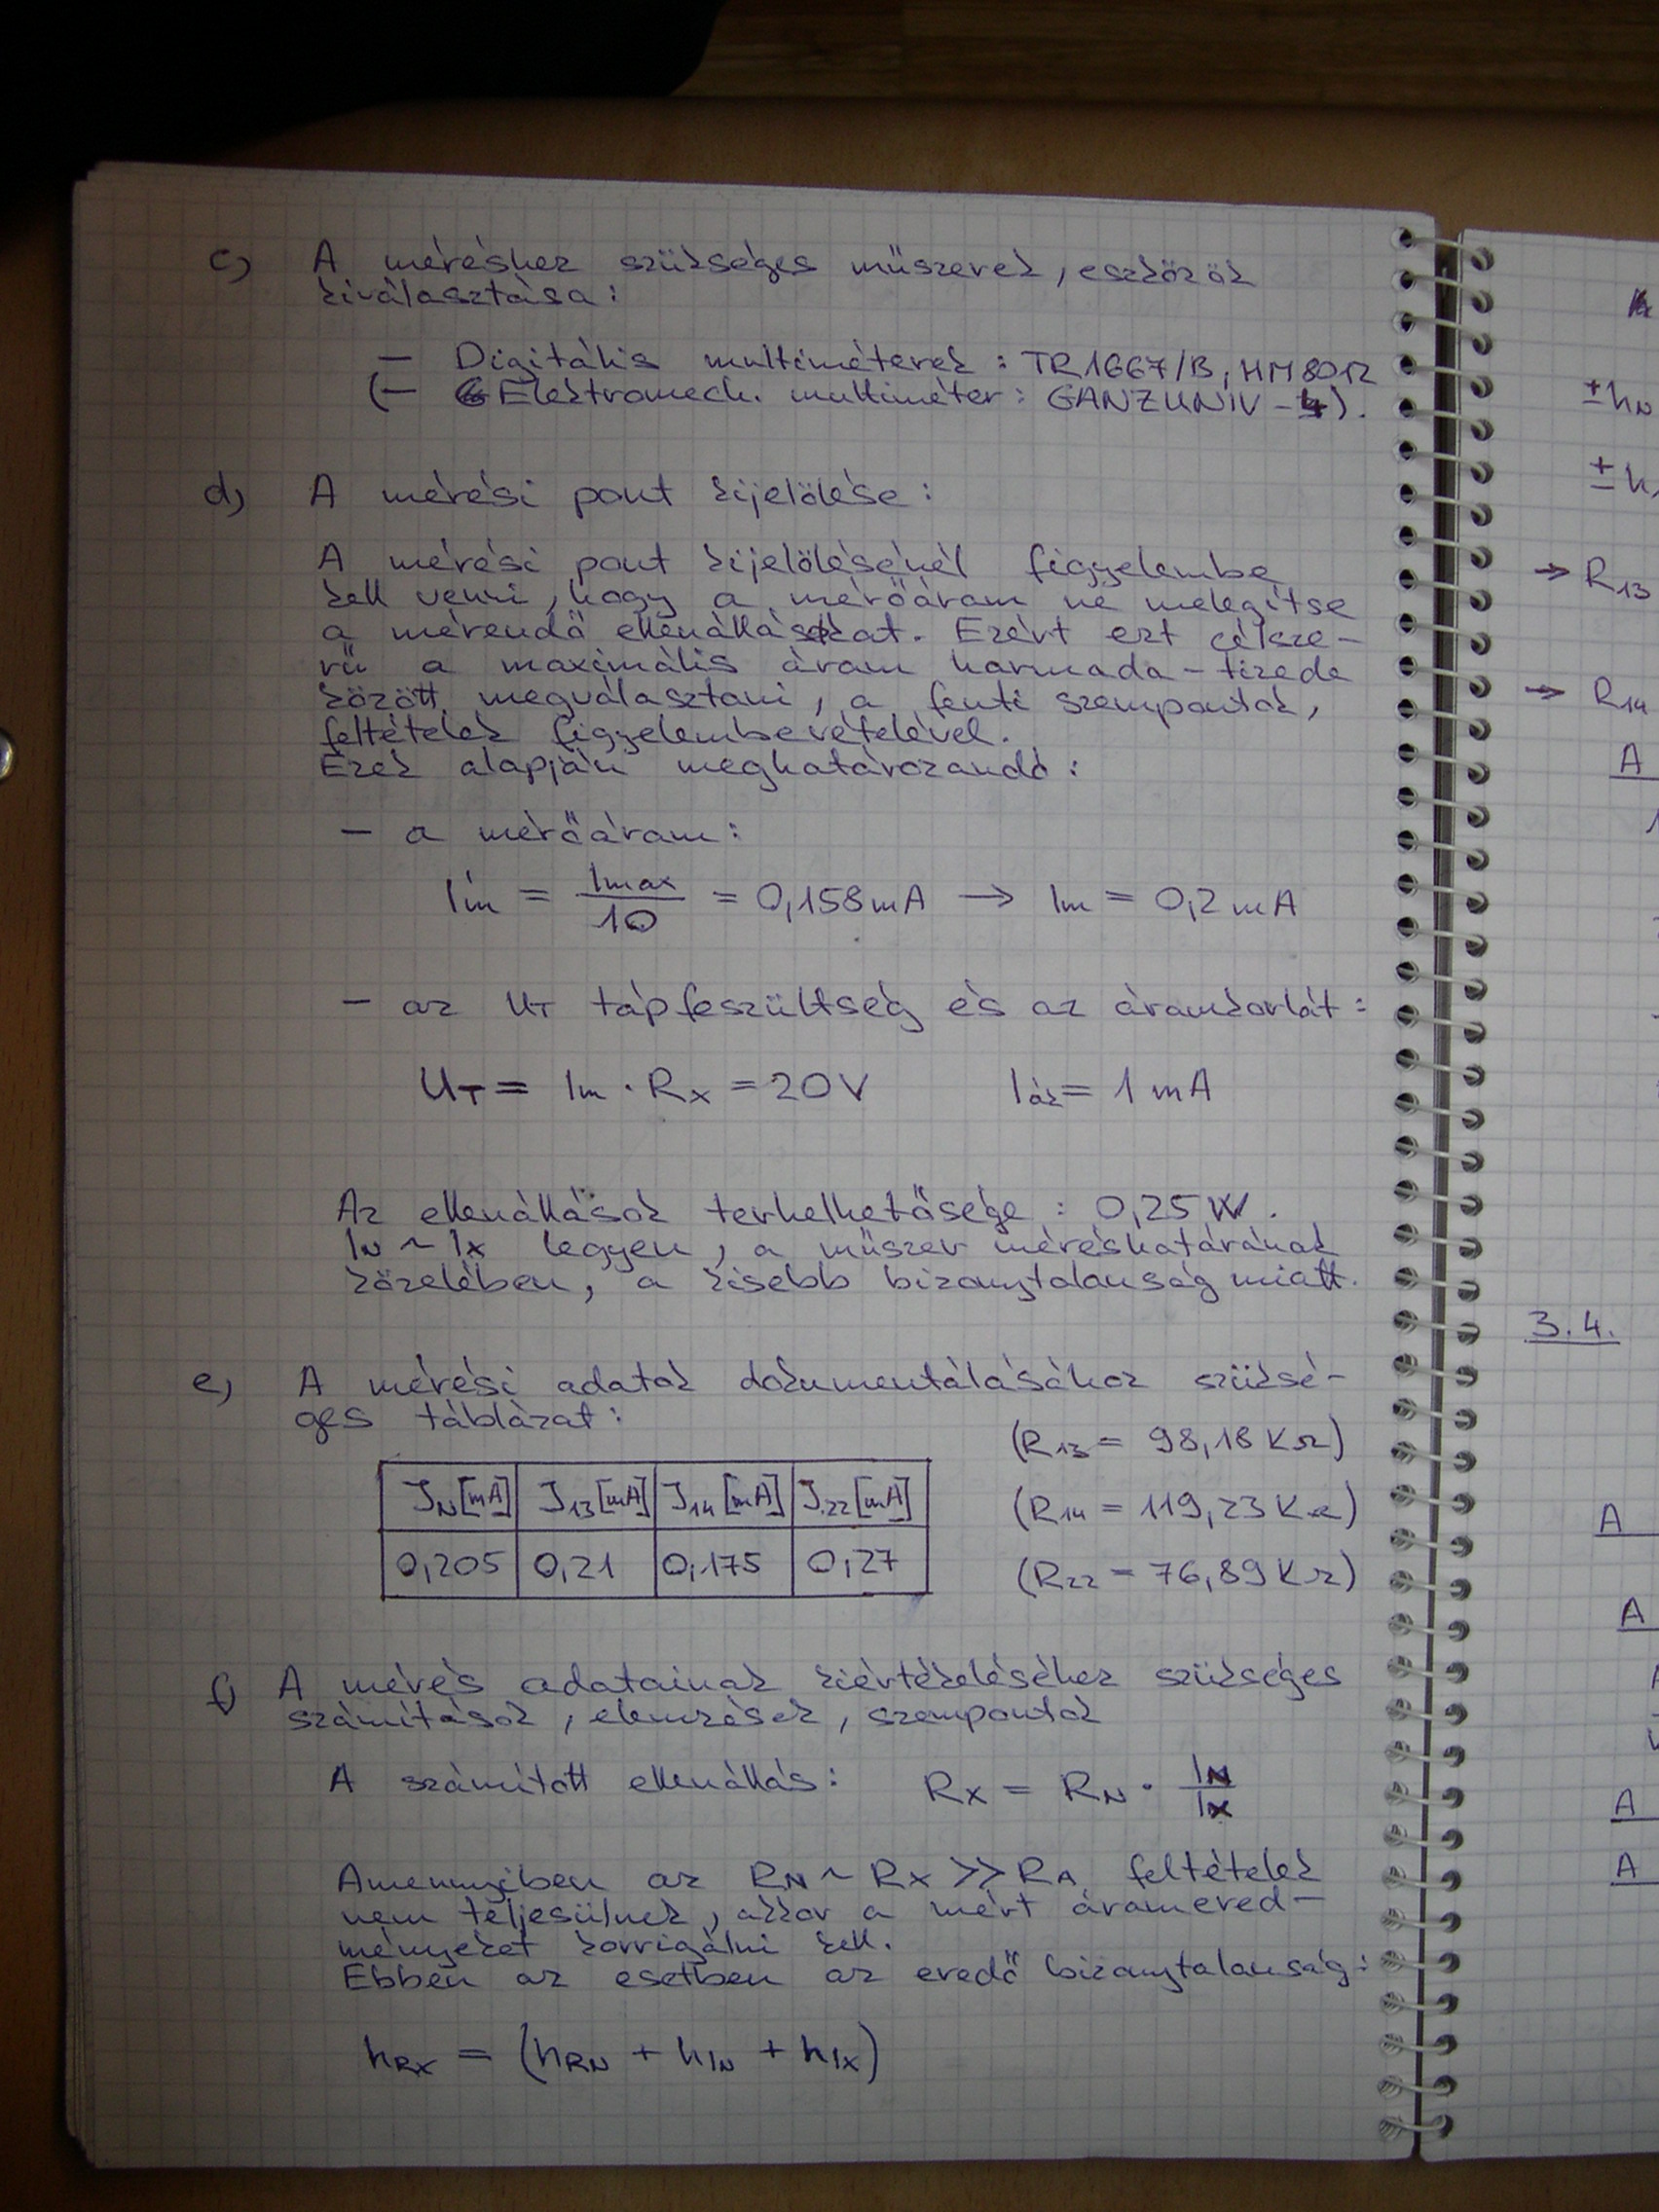 c) A méréshez szükséges műszerek, eszközök
kiválasztása:
- Digitális multiméterek: TR1667/B, HM8012
(- Elektromech. multiméter: GANZUNIV-4).
d) A mérési pont kijelölése:
A mérési pont kijelölésénél figyelembe
kell venni, hogy a mérőáram ne melegítse
a mérendő ellenállásokat. Ezért ezt célsze-
rű a maximális áram harmada - tizede
között megválasztani, a fenti szempontok,
feltételek figyelembevételével.
Ezek alapján meghatározandó:
- a mérőáram:
Im = Imax/10 = 0,158mA → Im = 0,2mA
- az UT tápfeszültség és az áramkorlát:
UT = Im · RX = 20V Iák = 1mA
Az ellenállások terhelhetősége: 0,25W.
IN ~ IX legyen, a műszer méréshatárának
közelében, a kisebb bizonytalanság miatt.
e) A mérési adatok dokumentálásához szüksé-
ges táblázat:
(R13 = 98,18KΩ)
JN[mA] J13[mA] J14[mA] J22[mA]
(R14 = 119,23KΩ)
0,205 0,21 0,175 0,27
(R22 = 76,89KΩ)
f) A mérés adatainak kiértékeléséhez szükséges
számítások, elemzések, szempontok
A számított ellenállás: RX = RN · IN/IX
Amennyiben az RN ~ RX >> RA feltételek
nem teljesülnek, akkor a mért áramered-
ményeket korrigálni kell.
Ebben az esetben az eredő bizonytalanság:
hRX = (hRN + hIN + hIX)
±hN
→ R13
→ R14
A
3.4.
A
A
A
A